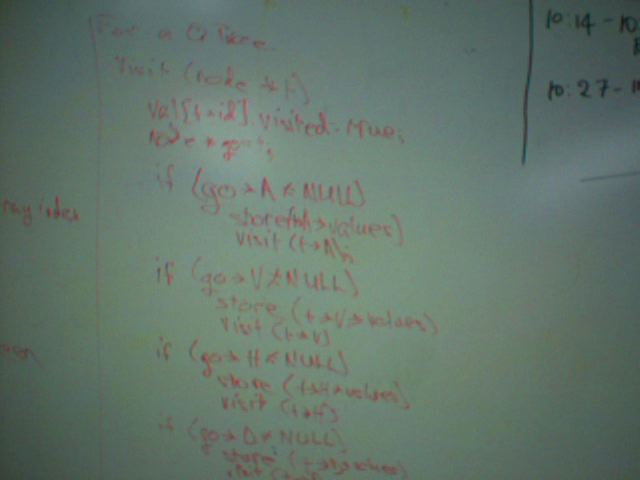 For a QTree.
Visit (node *t)
val[t→id].visited = true;
node * go=t;
if (go→A ≠ NULL)
store(t→A→values)
visit (t→A);
if (go→V ≠ NULL)
store (t→V→values)
visit (t→V)
if (go→H ≠ NULL)
store (t→H→values)
visit (t→H)
if (go→D ≠ NULL)
store (t→D→values)
visit
ray index
10:14 - 10:
10:27 -